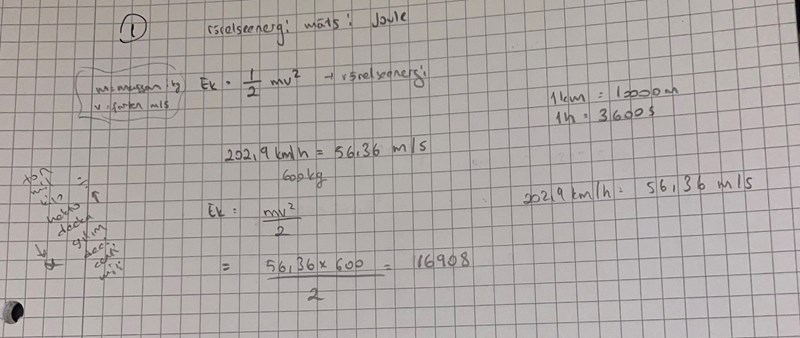 ① rörelseenergi mäts i Joule
m = massan i kg
v = farten m/s
Ek = 1/2 mv² → rörelseenergi
1 km = 1000 m
1h = 3600 s
202,9 km/h = 56,36 m/s
600 kg
202,9 km/h = 56,36 m/s
Ek = mv²/2
= 56,36 × 600 / 2 = 16908
hekto
deka
deci
centi
milli